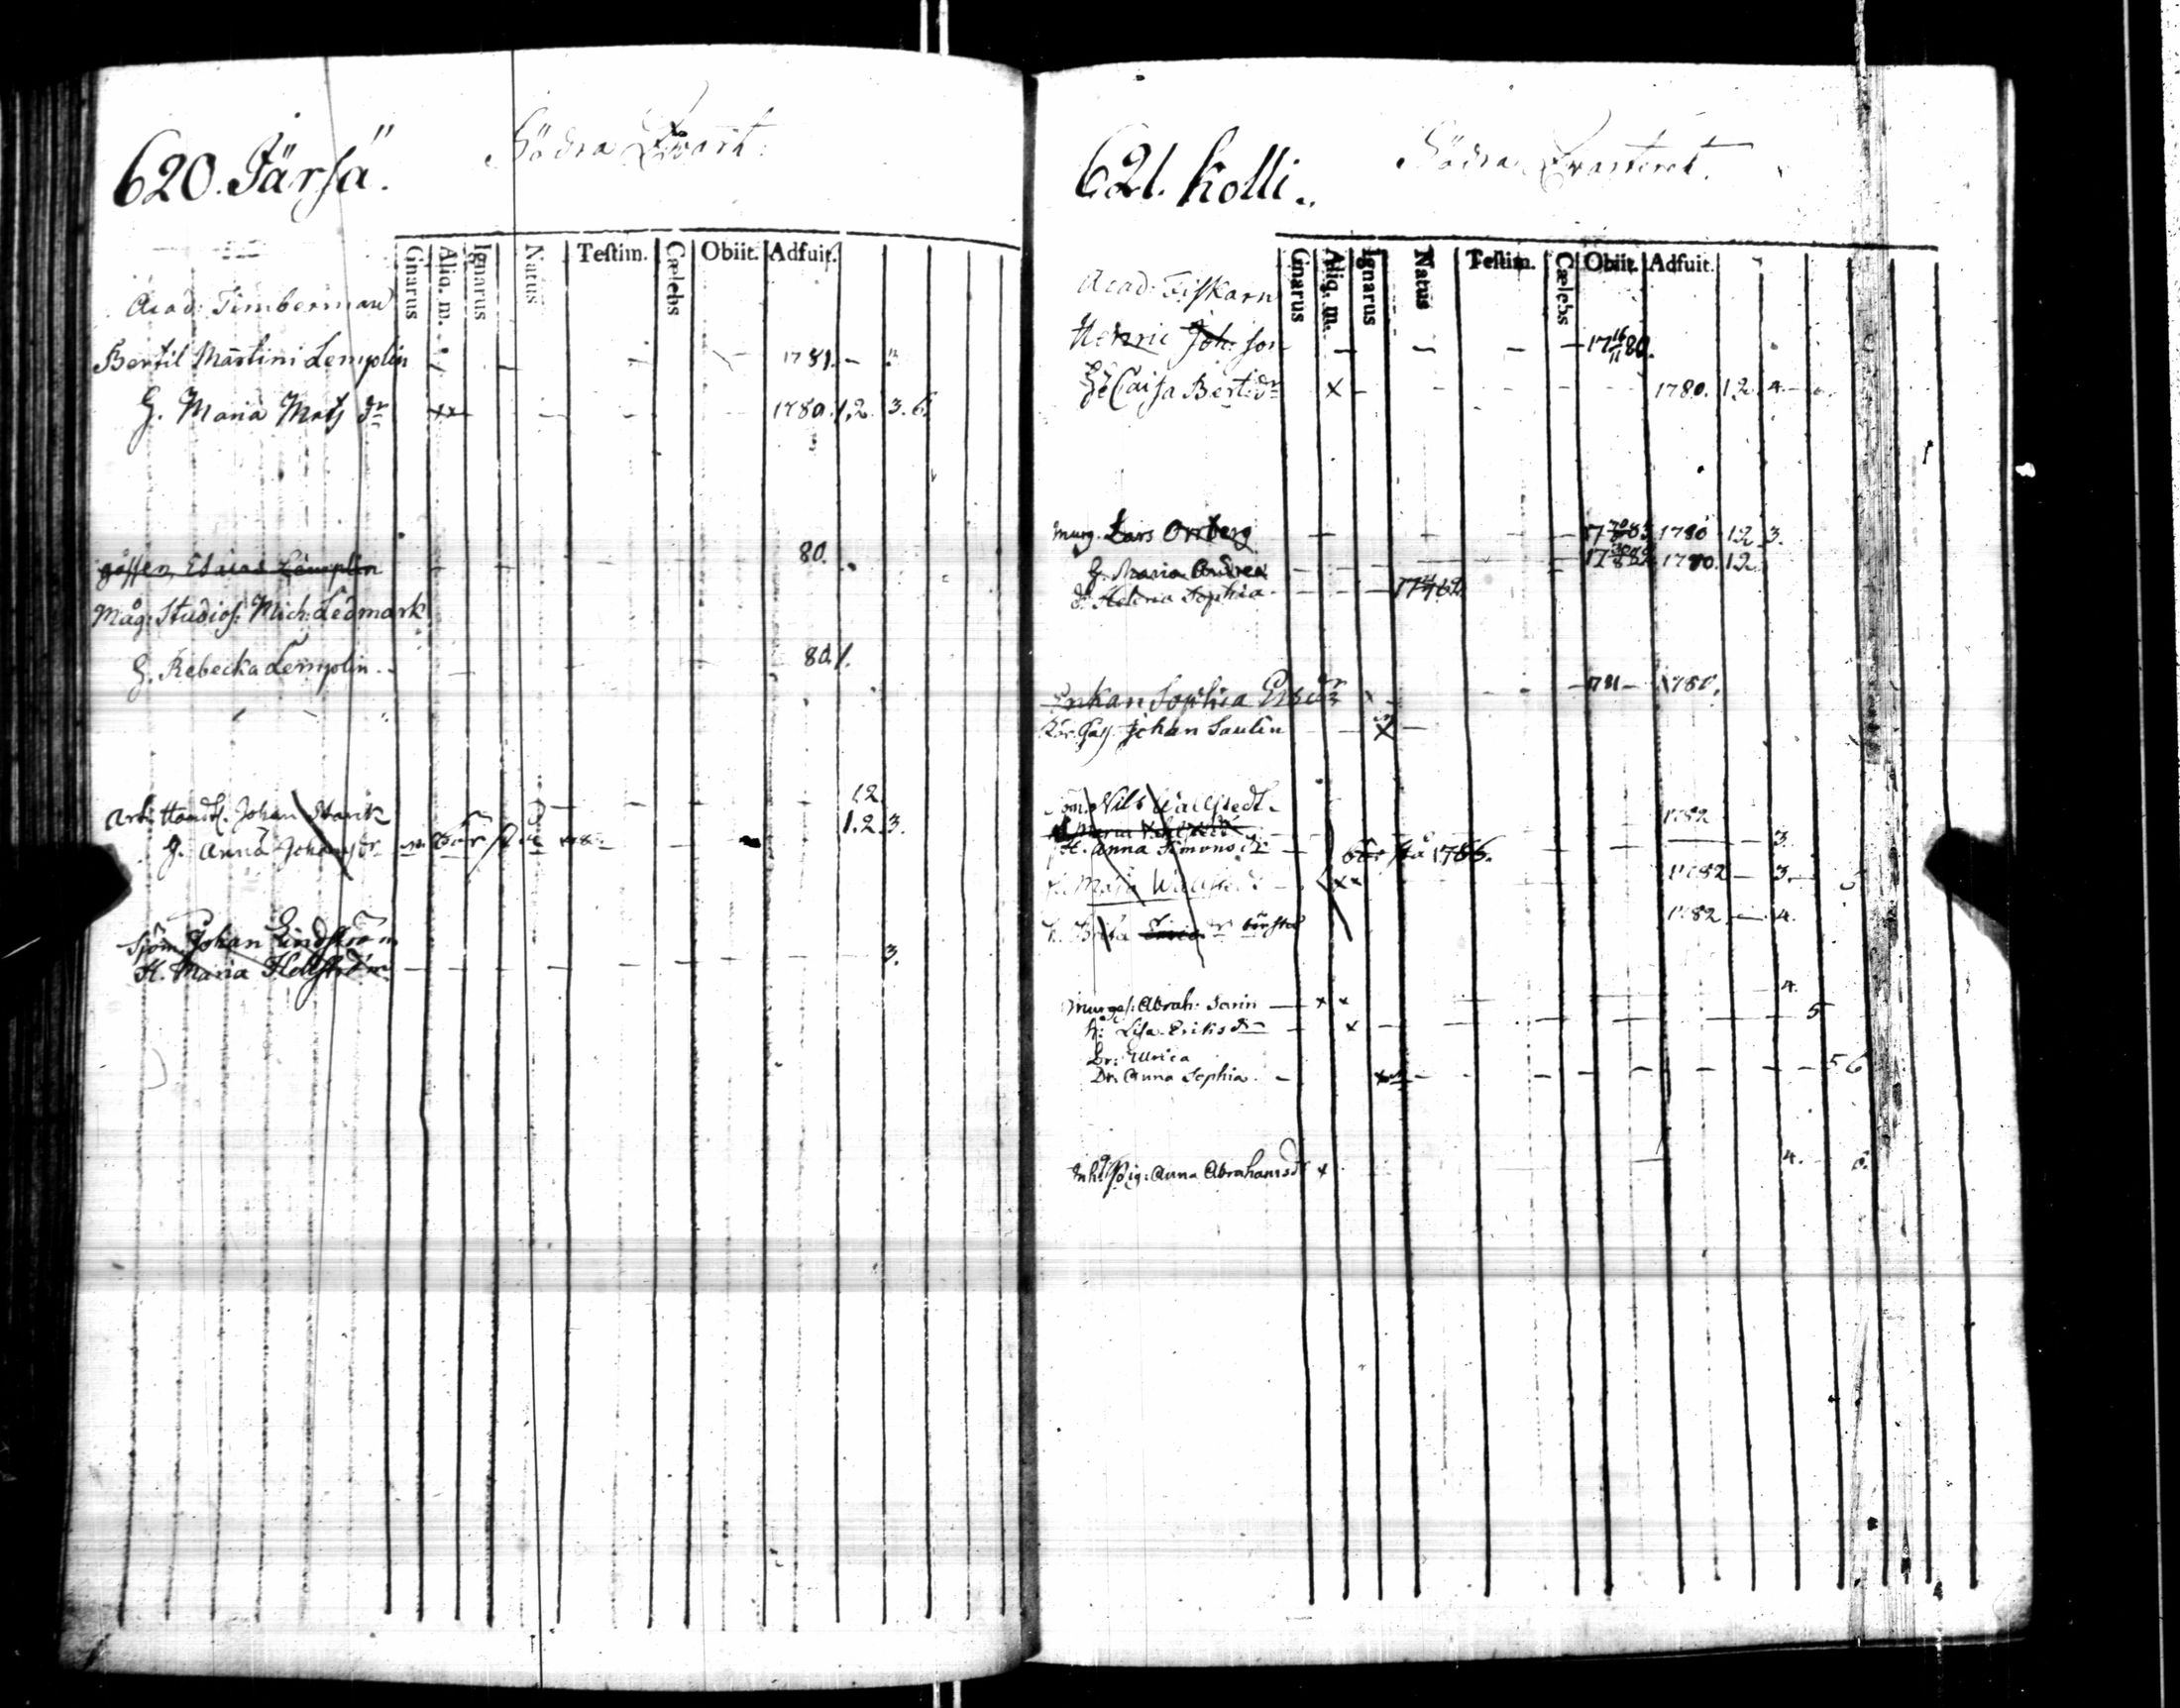 620. Järsä.
Södra Qvart:
Gnarus Aliq. m. Ignarus Natus Testim. Cælebs Obiit. Adfuit.
Acad: Timberman
Bertil Martini Lemplin 1781. –
H. Maria Mats dr xx 1780. 1,2. 3. 6.
gossen Esaias Lemplin 80.
Måg: Studios: Mich: Ledmark
H. Rebecka Lemplin 80. 1.
Art: Handtl. Johan Starck 1.2.
H. Anna Johansdr 1.2.3.
Sjöm Johan Lindström
H. Maria Hellström 3.
621. Kolli.
Södra Qvarteret.
Gnarus Aliq. m. Ignarus Natus Testim. Cælebs Obiit. Adfuit.
Acad: Fiskarn
Henric Joh: son 17 16/11 80.
Caisa Bert: dr x 1780. 1.2. 4.
Murg. Lars Orrberg 1780 1.2 3.
H. Maria Andrea 1780. 1.2
d. Helena Sophia
Enkan Sophia Ersdr x 1781 – 1780.
Johan Saulin x
Nils Wallstedt 1782
H. Anna Simonsdr 1786. 3.
Maja Wallstedt xx 1782 – 3.
H. Brita 1782 – 4.
Murges: Abrah: Sarin x x 4.
H: Lisa Eriksdr x 5
Dr: Ullrica
Dr: Anna Sophia 5 6
Inh: Pig: Anna Abrahamsdr x 4. 6.